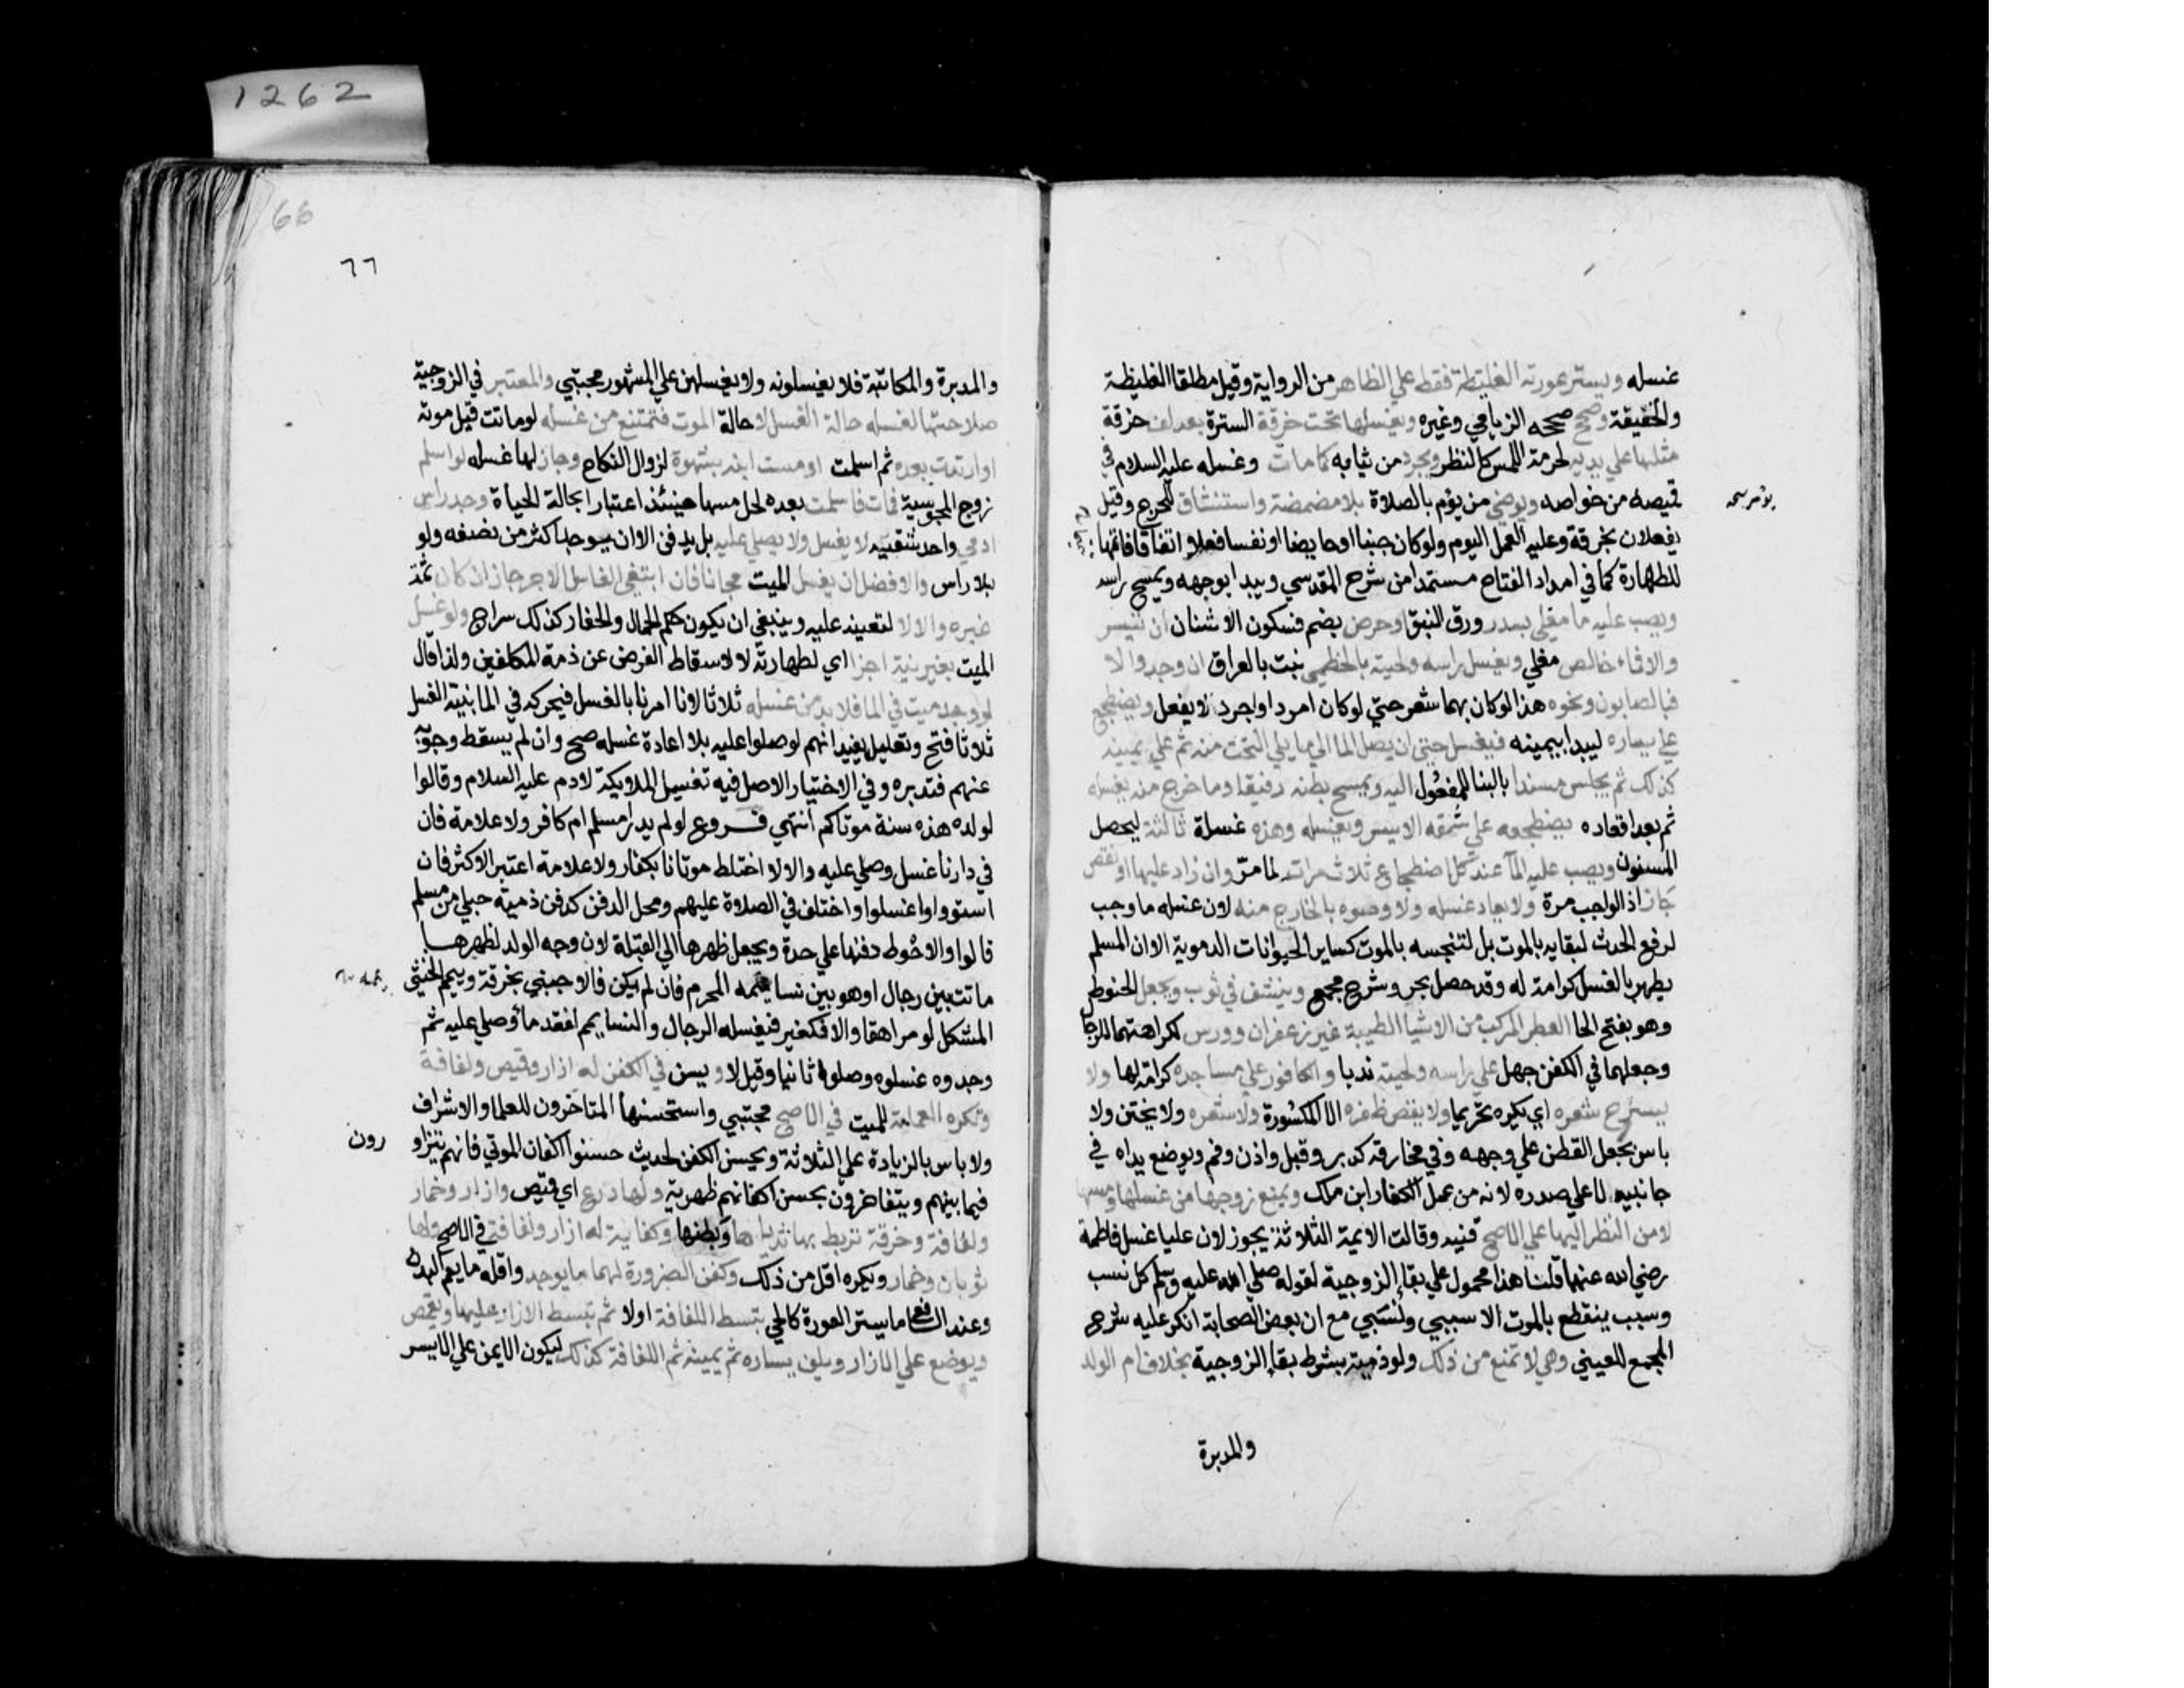 1262
غسله ويستر عورته الغليظة فقط علي الظاهر من الرواية وقيل مطلقا الغليظة
والخفيفة وصح صححه الزيلعي وغيره ويغسلها تحت خرقة السترة بعد لف خرقة
مثلها علي يديه لحرمة اللمس كالنظر ويجرد من ثيابه كما مات وغسله عليه السلام في
قميصه من خواصه ويوضي من يؤم بالصلاة بلا مضمضة واستنشاق للحرج وقيل
يفعلان بخرقة وعليه العمل اليوم ولو كان جنبا او حايضا او نفسا فعلا اتفاقا تتميما
للطهارة كما في امداد الفتاح مستمدا من شرح المقدسي ويبدا بوجهه ويمسح راسه
ويصب عليه ما مغلي بسدر ورق النبق او حرض بضم فسكون الاشنان ان تيسر
والا فماء خالص مغلي ويغسل راسه ولحيته بالخطمي نبت بالعراق ان وجد والا
فبالصابون ونحوه هذا لو كان بهما شعر حتي لو كان امرد او اجرد لا يفعل ويضطجع
علي يساره ليبدا بيمينه فيغسل حتي ان يصل الما الي ما يلي التحت منه ثم علي يمينه
كذلك ثم يجلس مسندا بالبنا للمفعول اليه ويمسح بطنه رفيقا وما خرج منه يغسله
ثم بعد اقعاده يضطجعه علي شقه الايسر ويغسله وهذه غسلة ثالثة ليحصل
المسنون ويصب عليه المآ عند كل اضطجاع ثلاث مرات لما مر وان زاد عليها او نقص
جاز اذ الواجب مرة ولا يعاد غسله ولا وضوه بالخارج منه لان غسله ما وجب
لرفع الحدث لبقايه بالموت بل لتنجسه بالموت كساير الحيوانات الدموية الا ان المسلم
يطهر بالغسل كرامة له وقد حصل بحر وشرح مجمع وينشف في ثوب ويجعل الحنوط
وهو بفتح الحا العطر المركب من الاشيا الطيبة غير زعفران وورس لكراهتهما للرجا
وجعلهما في الكفن جهل علي راسه ولحيته ندبا والكافور علي مساجده كرامة لها ولا
يسترح شعره اي يكره تحريما ولا يقص ظفره الا المكسورة ولا شعره ولا يختن ولا
باس بجعل القطن علي وجهه وفي مخارقه كدبر وقبل واذن وفم ويوضع يداه في
جانبيه لا علي صدره لانه من عمل الكفار ابن ملك ويمنع زوجها من غسلها ومسها
لا من النظر اليها علي الاصح قنيه وقالت الايمة الثلاثة يجوز لان عليا غسل فاطمة
رضي الله عنهما قلنا هذا محمول علي بقاء الزوجية لقوله صلي الله عليه وسلم كل نسب
وسبب ينقطع بالموت الا سببي ونسبي مع ان بعض الصحابة انكر عليه شرح
المجمع للعيني وهي لا تمنع من ذلك ولو ذمية بشرط بقاء الزوجية بخلاف ام الولد
والمدبرة
66
٦٦
والمدبرة والمكاتبة فلا يغسلونه ولا يغسلهن علي المشهور مجتبي والمعتبر في الزوجية
صلاحيتها لغسله حالة الغسل لا حالة الموت فتمتنع من غسله لو ماتت قبل موته
او ارتدت بعده ثم اسلمت او مست ابنه بشهوة لزوال النكاح وجاز لها غسله لو اسلم
زوج المجوسية فمات فاسلمت بعده لحل مسها حينئذ اعتبارا بحالة الحياة وجد راس
ادمي واحد شقيه لا يغسل ولا يصلي عليه بل يدفن الا ان يوجد اكثر من نصفه ولو
بلا راس والافضل ان يغسل الميت مجانا فان ابتغي الغاسل الاجر جاز ان كان ثمة
غيره والا لا لتعينه عليه وينبغي ان يكون حكم الحمال والحفار كذلك سراج ولو غسل
الميت بغير نية اجزا اي لطهارته لا لاسقاط الفرض عن ذمة المكلفين ولذا قال
لو وجد ميت في الما فلا بد من غسله ثلاثا لانا امرنا بالغسل فيحركه في الما بنية الغسل
ثلاثا فتح وتعليله يفيد انهم لو صلوا عليه بلا اعادة غسله صح وان لم يسقط وجوبه
عنهم فتدبره وفي الاختيار الاصل فيه تغسيل الملايكة لادم عليه السلام وقالوا
لولده هذه سنة موتاكم انتهي فروع لو لم يدر امسلم ام كافر ولا علامة فان
في دارنا غسل وصلي عليه والا لا اختلط موتانا بكفار ولا علامة اعتبر الاكثر فان
استووا غسلوا واختلف في الصلاة عليهم ومحل الدفن كدفن ذمية حبلي من مسلم
قالوا والاحوط دفنها علي حدة ويجعل ظهرها الي القبلة لان وجه الولد لظهرها
ماتت بين رجال او هو بين نسا يممه المحرم فان لم يكن فالاجنبي بخرقة وييمم الخنثي
المشكل لو مراهقا والا فكغير فيغسله الرجال والنسا يمم لفقد ما وصلي عليه ثم
وجدوه غسلوه وصلوا ثانيا وقيل لا ويسن في الكفن له ازار وقميص ولفافة
وتكره العمامة للميت في الاصح مجتبي واستحسنها المتاخرون للعلما والاشراف
ولا باس بالزيادة علي الثلاثة ويحسن الكفن لحديث حسنوا اكفان الموتي فانهم يتزاو
رون
فيما بينهم ويتفاخرون بحسن اكفانهم ظهرية ولها درع اي قميص وازار وخمار
ولفافة وخرقة تربط بها ثدياها وبطنها وكفاية له ازار ولفافة في الاصح ولها
ثوبان وخمار ويكره اقل من ذلك وكفن الضرورة لهما ما يوجد واقله ما يعم البدن
وعند الشافعي ما يستر العورة كالحي تبسط اللفافة اولا ثم تبسط الازار عليها ويقمص
ويوضع علي الازار ويلف يساره ثم يمينه ثم اللفافة كذلك ليكون الايمن علي الايسر